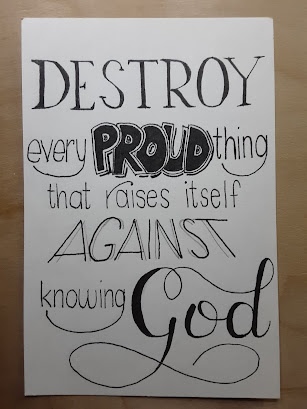 DESTROY
every PROUD thing
that raises itself
AGAINST
knowing God